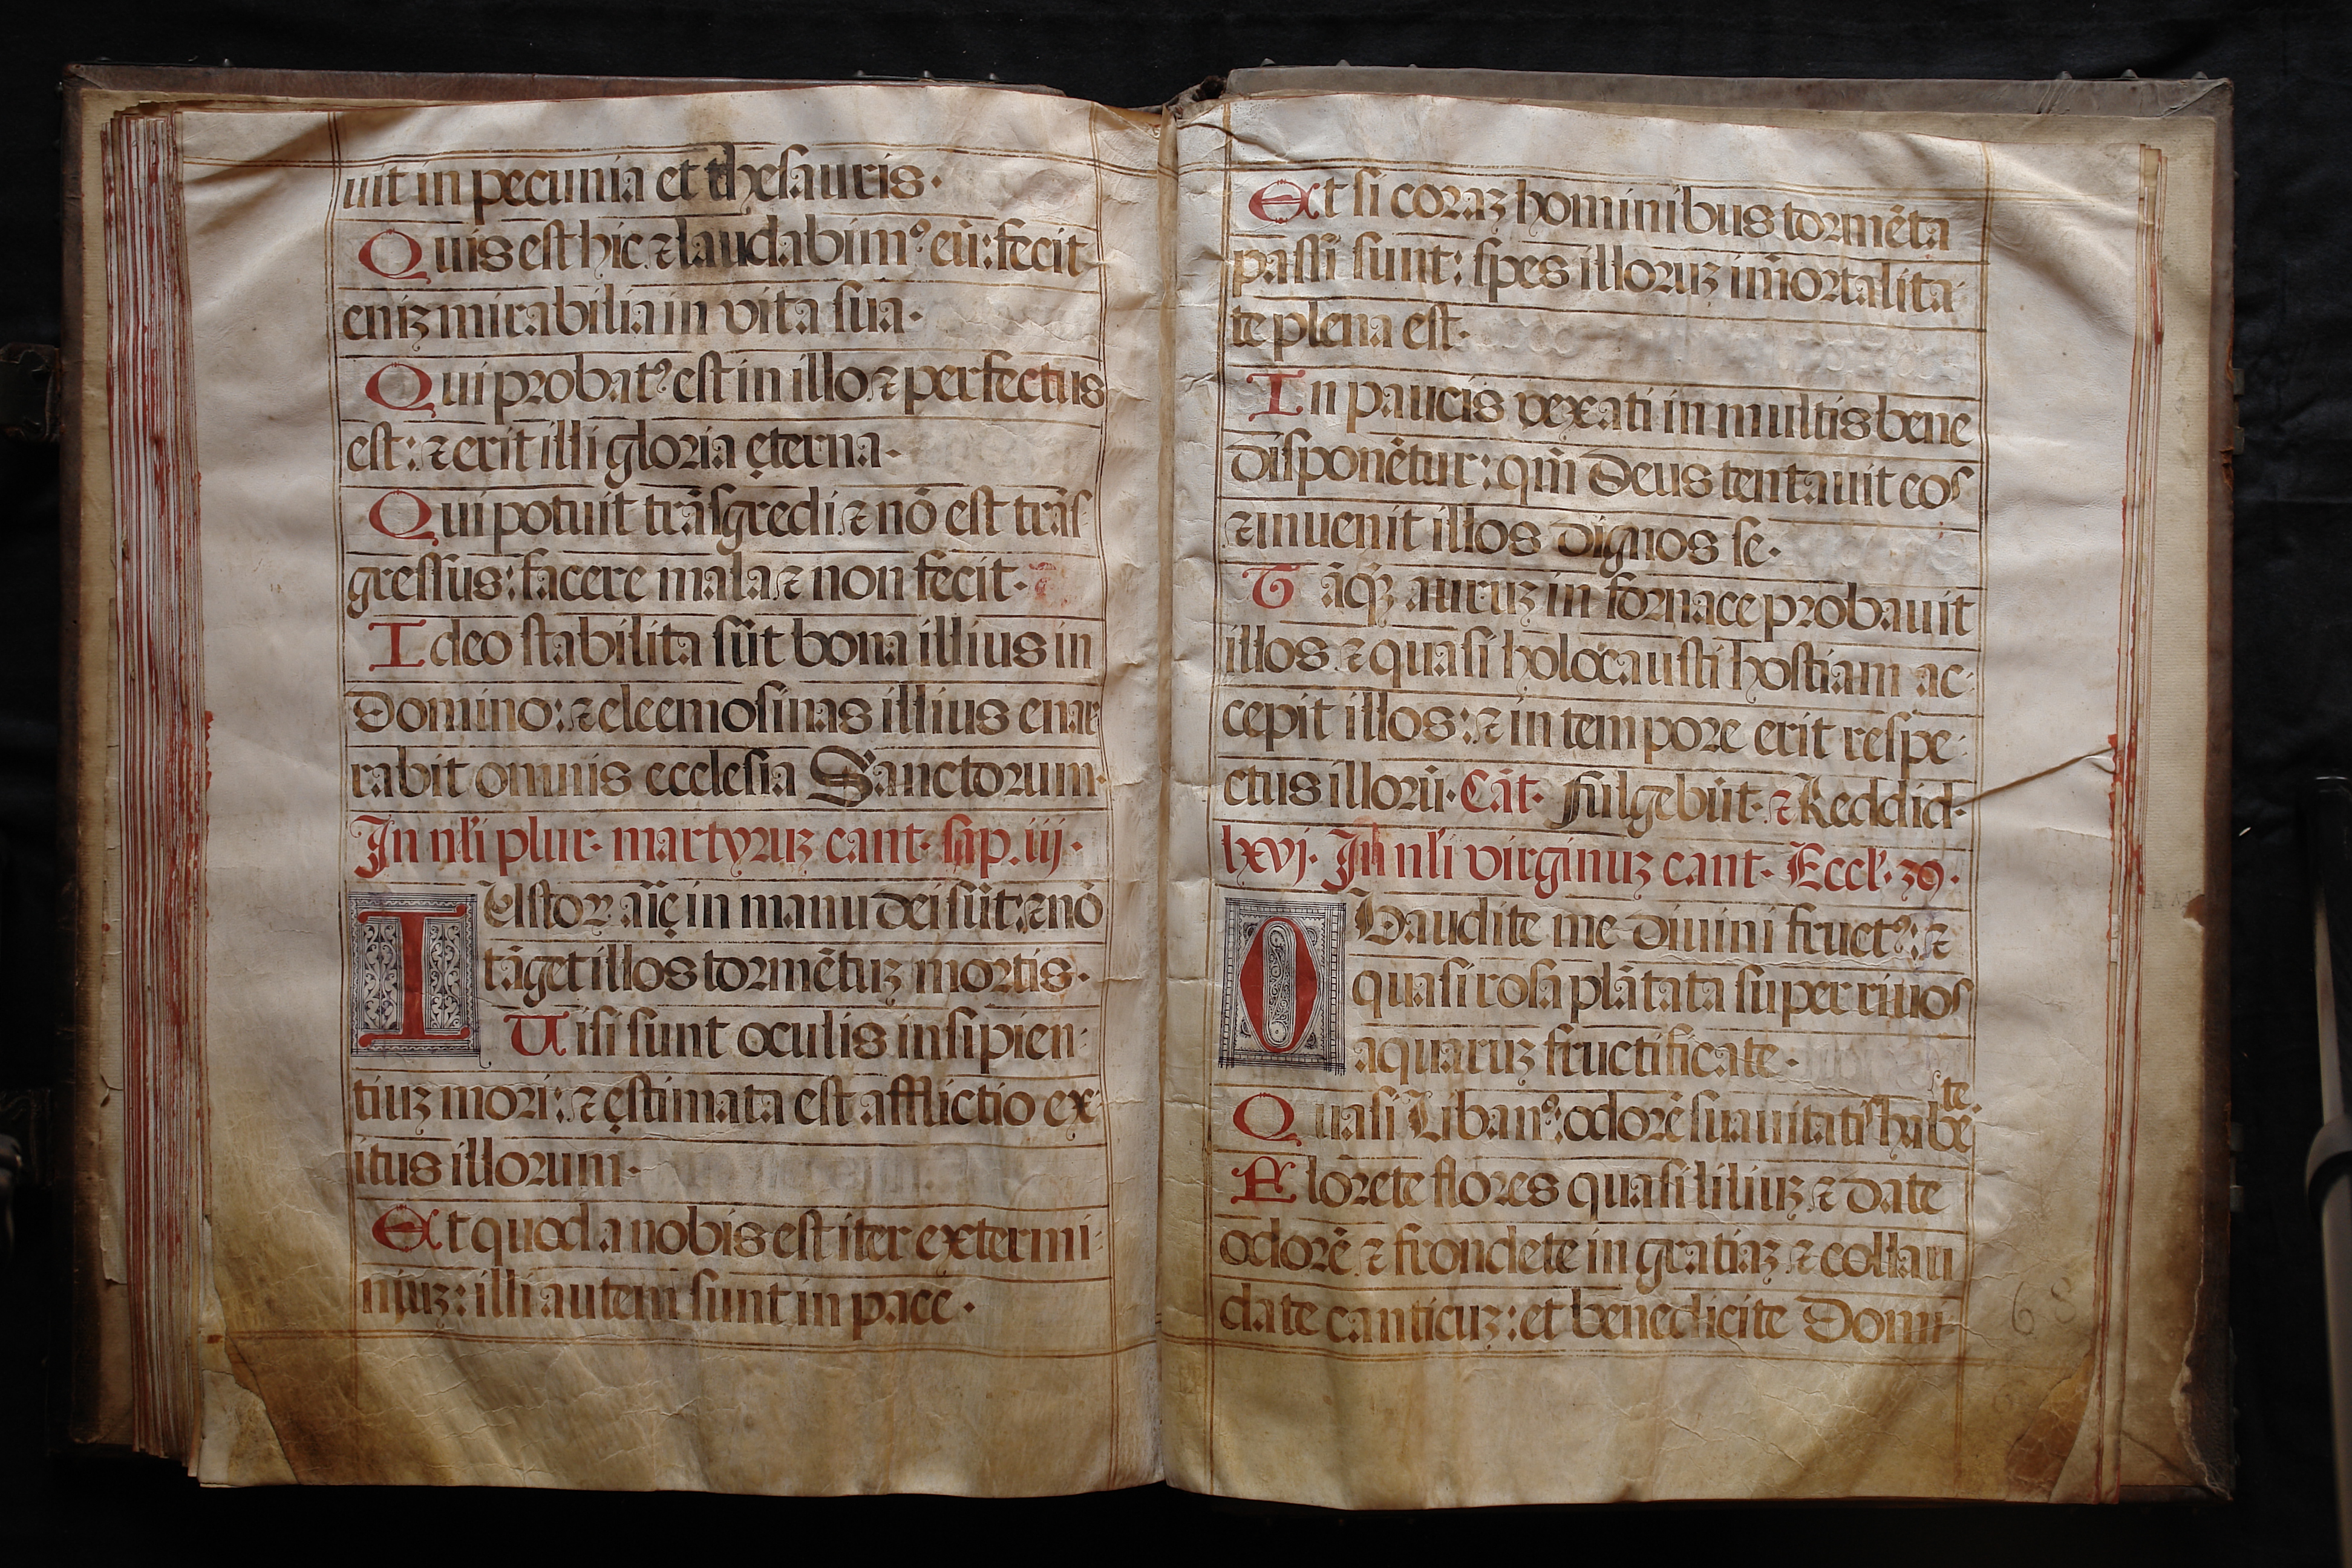 uit in pecunia et thesauris·
Quis est hic ⁊ laudabimꝰ eū: fecit
eniʒ mirabilia in vita sua·
Qui probatꝰ est in illo ⁊ perfectus
est: ⁊ erit illi gloria ęterna·
Qui potuit trāsgredi ⁊ nō est trās
gressus: facere mala ⁊ non fecit·
Ideo stabilita sūt bona illius in
Domino: ⁊ eleemosinas illius enar
rabit omnis ecclesia Sanctorum·
In nli plur· martyruʒ cant· sap. iij·
IUstoꝝ aīę in manu dei sūt: ⁊ nō
tāget illos tormētuʒ mortis·
Uisi sunt oculis insipien
tiuʒ mori: ⁊ ęstimata est afflictio ex
itus illorum·
Et quod a nobis est iter extermi
niuʒ: illi autem sunt in pace·
Et si coraʒ hominibus tormēta
passi sunt: spes illoruʒ im̄ortalita
te plena est·
In paucis vexati in multis bene
disponētur: qm̄ Deus tentauit eos
⁊ inuenit illos dignos se·
Tāqʒ auruʒ in fornace probauit
illos ⁊ quasi holocausti hostiam ac
cepit illos: ⁊ in tempore erit respe
ctus illorū· Cāt· Fulgebūt· ⁊ Reddid·
lxvj· In nli virginuʒ cant· Eccl· 39·
OBaudite me diuini fructꝰ: ⁊
quasi rosa plātata super riuos
aquaruʒ fructificate·
te
Quasi Libanꝰ: odorē suauitatis habē
Florete flores quasi liliuʒ ⁊ date
odorē ⁊ frondete in gratiaʒ ⁊ collau
date canticuʒ: et benedicite Domi
68